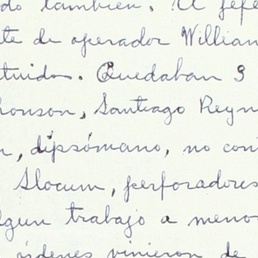 do también. El jefe
te de operador William
tuidos. Quedaban 3
honson, Santiago Reyn
n, dipsómano, no con
Slocum, perforadores
lgun trabajo a meno
órdenes vinieron de